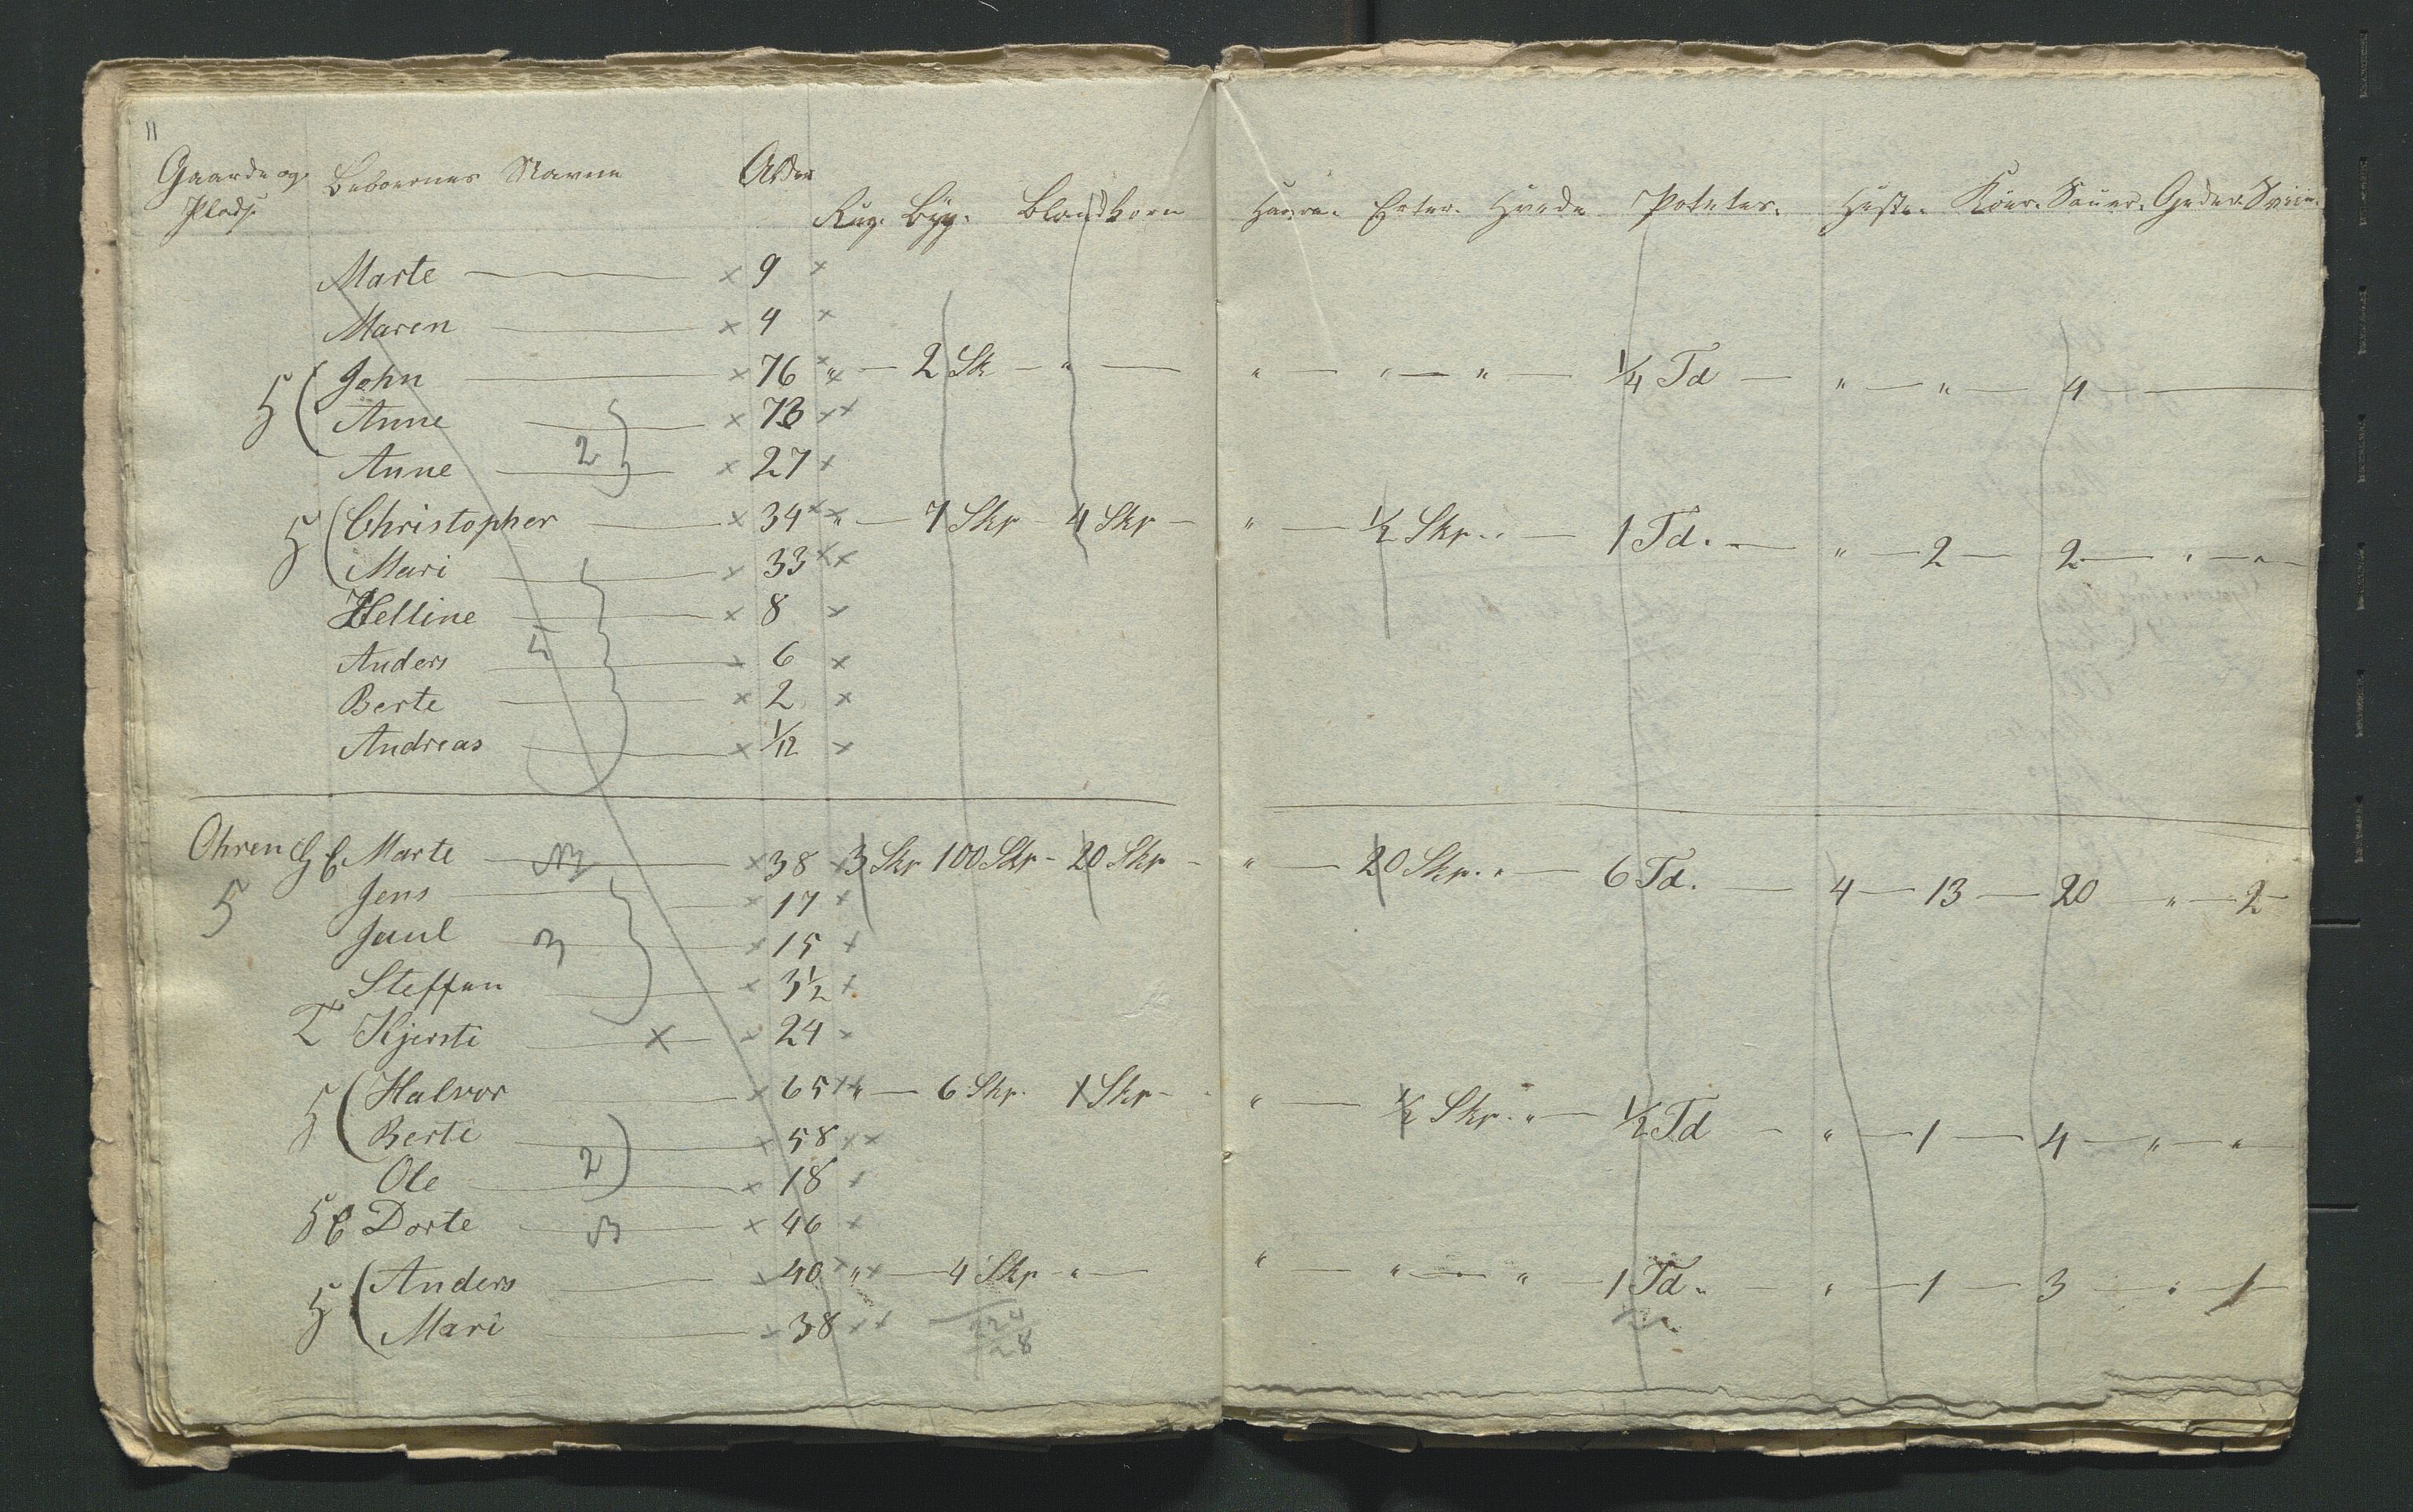 11
Gaarde og Beboernes Navne Alder
Pladse Rug. Byg. Blandkorn Havre. Erter. Hvede Poteter. Heste. Köer. Sauer. Geder. Sviin.
Marte — × 9 ×
Maren — × 4 ×
John — × 76 × " — 2 Sk — " — " — " — " — 1/4 Td — " — " — 4 —
Anne — × 73 × ×
Anne — 2 × 27 ×
Christopher — × 34 × × " — 7 Skp — 4 Skp — " — 1/2 Skp. " — 1 Td. — " — 2 — 2 — " — "
Mari — × 33 × ×
Helline — × 8 ×
Anders — 5 × 6 ×
Berte — × 2 ×
Andreas — × 1/12 ×
Ohren Marte — × 38 × 3 Skp 100 Skp — 20 Skp — " — 20 Skp. " — 6 Td. — 4 — 13 — 20 " — 2
Jens — × 17 ×
Jaul — 3 × 15 ×
Steffen — × 3 1/2 ×
T Kjersti — × × 24 ×
Halvor — × 65 × × " — 6 Skp. 1 Skp — " — 1/2 Skp. " — 1/2 Td — " — 1 — 4 — " — "
Berti — × 58 × ×
Ole — 2 × 18 ×
Dorte — × 46 ×
Anders — × 40 × " × — 4 Skp — " — " — " — " — 1 Td. — " — 1 — 3 — " 1
Mari — × 38 × ×